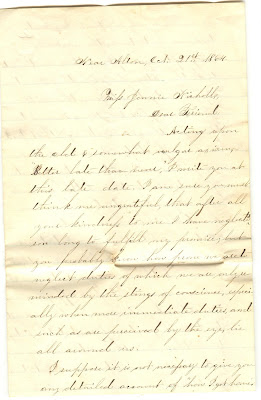 Near Alton, Oct. 21st 1864
Miss Jennie
Dear Friend
Acting upon
the old & somewhat vulgar saying
"Better late than never," I write you at
this late date. I am sure you must
think me ungrateful, that after all
your kindness to me I have neglected
so long to fulfill my promise, but
you probably know how prone we are to
neglect duties of which we are only re-
minded by the stings of conscience, speci-
ally when more immediate duties and
such as are perceived by the eyes lie
all around us.
I suppose it is not necessary to give you
any detailed account of how I got home